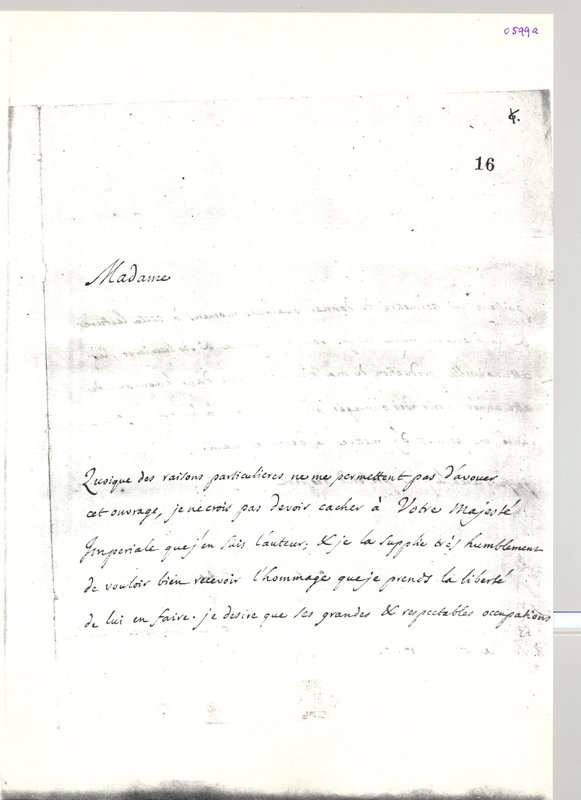 0599a
16
Madame
Quoique des raisons particulieres ne me permettent pas d'avouer
cet ouvrage, je ne crois pas devoir cacher à Votre Majesté
Imperiale que j'en suis l'auteur; & je la supplie très humblement
de vouloir bien recevoir l'hommage que je prends la liberté
de lui en faire. je desire que ses grandes & respectables occupations